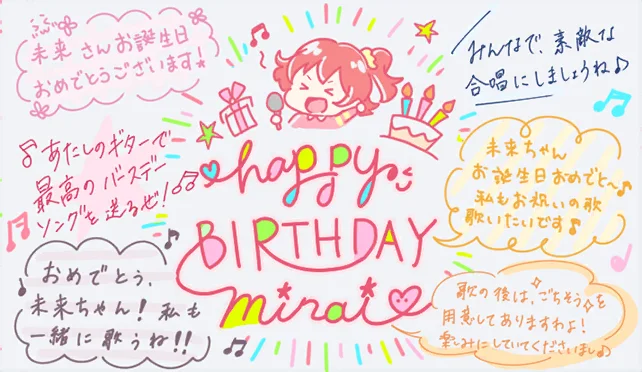 未来さんお誕生日
おめでとうございます!
みんなで、素敵な
合唱にしましょうね♪
happy
BIRTHDAY
mirai
♫あたしのギターで
最高のバースデー
ソングを送るぜ!♫
未来ちゃん
お誕生日おめでと〜
私もお祝いの歌
歌いたいです♪
おめでとう、
未来ちゃん!私も
一緒に歌うね!!
歌の後は、ごちそうを
用意してありますわよ!
楽しみにしていてくださいまし♪